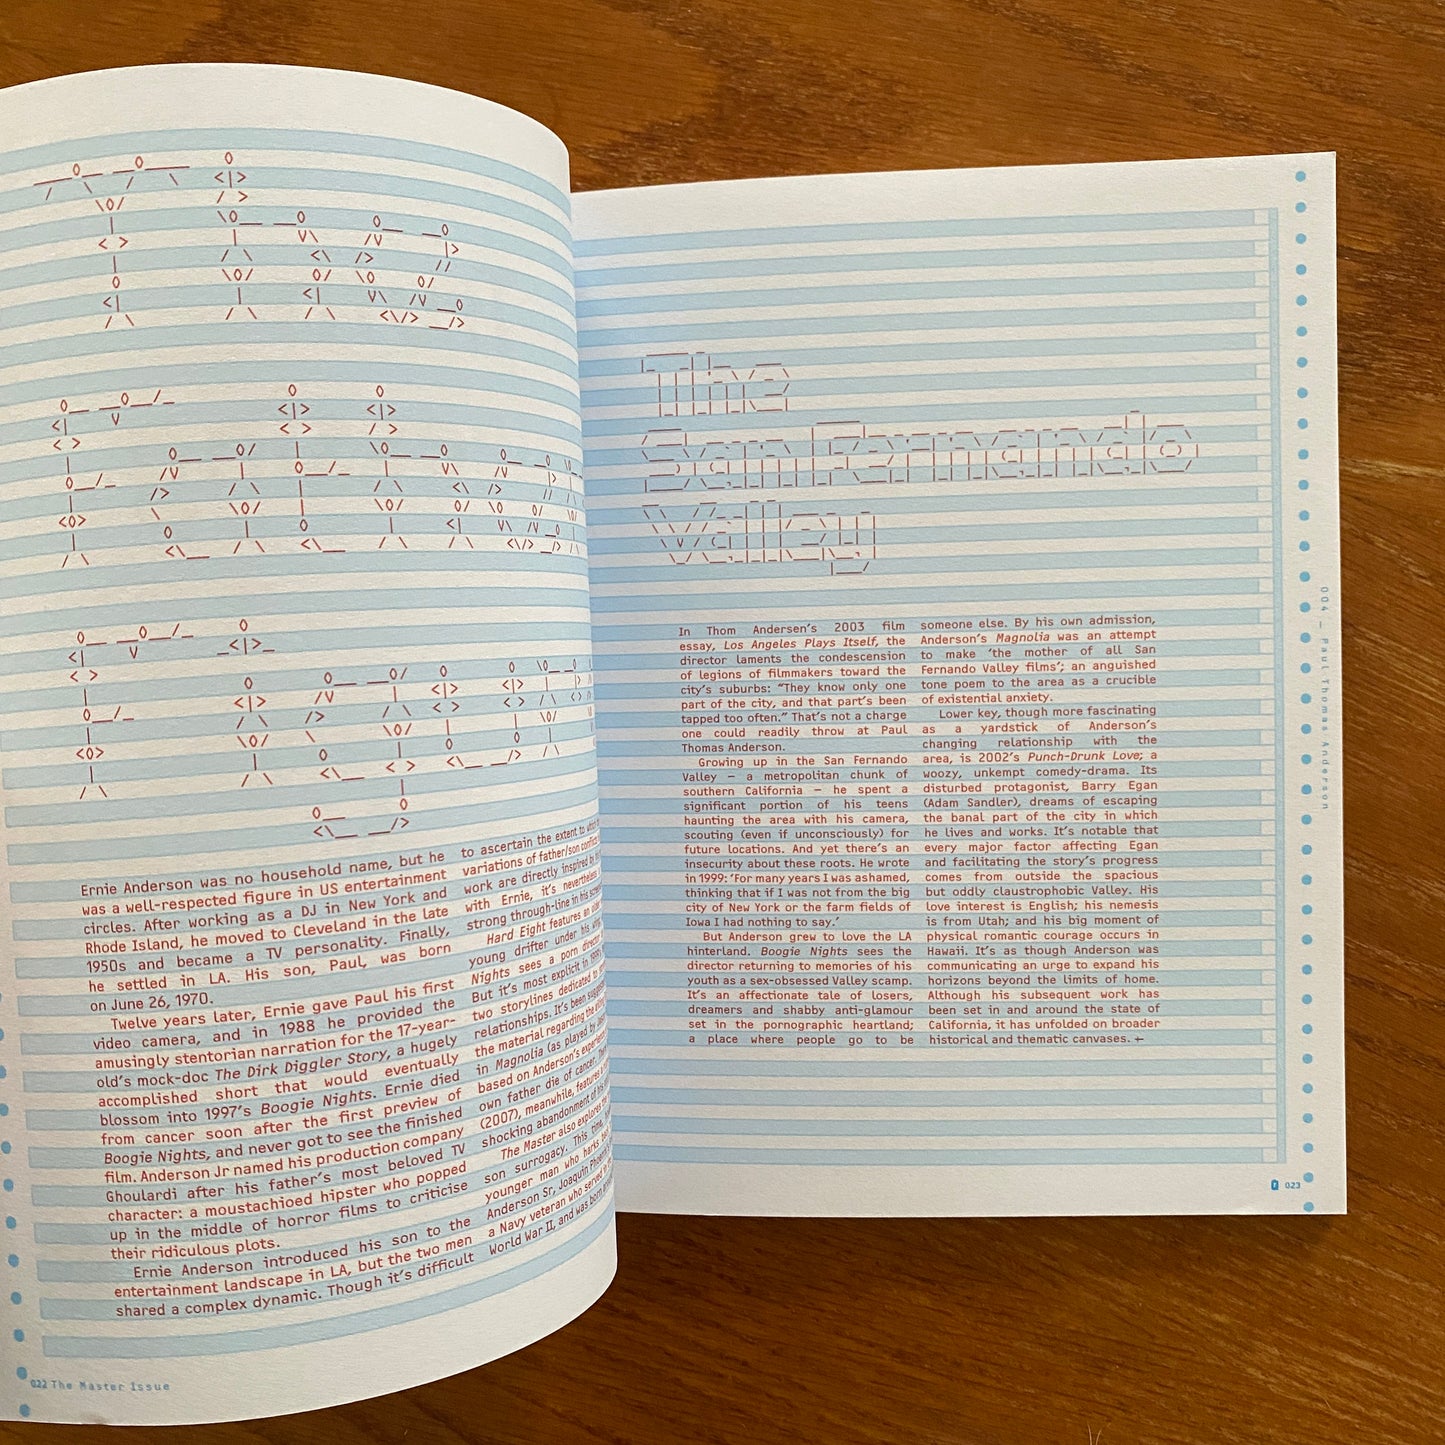 Ernie Anderson was no household name, but he
was a well-respected figure in US entertainment
circles. After working as a DJ in New York and
Rhode Island, he moved to Cleveland in the late
1950s and became a TV personality. Finally,
he settled in LA. His son, Paul, was born
on June 26, 1970.
Twelve years later, Ernie gave Paul his first
video camera, and in 1988 he provided the
amusingly stentorian narration for the 17-year-
old's mock-doc The Dirk Diggler Story, a hugely
accomplished short that would eventually
blossom into 1997's Boogie Nights. Ernie died
from cancer soon after the first preview of
Boogie Nights, and never got to see the finished
film. Anderson Jr named his production company
Ghoulardi after his father's most beloved TV
character: a moustachioed hipster who popped
up in the middle of horror films to criticise
their ridiculous plots.
Ernie Anderson introduced his son to the
entertainment landscape in LA, but the two men
shared a complex dynamic. Though it's difficult
to ascertain the extent to which
variations of father/son conflicts
work are directly inspired by
with Ernie, it's nevertheless
strong through-line in his
Hard Eight features an older
young drifter under his
Nights sees a porn director
But it's most explicit in
two storylines dedicated to
relationships. It's been suggested
the material regarding the
in Magnolia (as played by
based on Anderson's
own father die of cancer.
(2007), meanwhile, features a
shocking abandonment of his
The Master also explores the
son surrogacy. This time,
younger man who harks
Anderson Sr, Joaquin
a Navy veteran who served in
World War II, and was born
022 The Master Issue
The
San Fernando
Valley
In Thom Andersen's 2003 film
essay, Los Angeles Plays Itself, the
director laments the condescension
of legions of filmmakers toward the
city's suburbs: “They know only one
part of the city, and that part's been
tapped too often.” That's not a charge
one could readily throw at Paul
Thomas Anderson.
Growing up in the San Fernando
Valley – a metropolitan chunk of
southern California – he spent a
significant portion of his teens
haunting the area with his camera,
scouting (even if unconsciously) for
future locations. And yet there's an
insecurity about these roots. He wrote
in 1999: 'For many years I was ashamed,
thinking that if I was not from the big
city of New York or the farm fields of
Iowa I had nothing to say.'
But Anderson grew to love the LA
hinterland. Boogie Nights sees the
director returning to memories of his
youth as a sex-obsessed Valley scamp.
It's an affectionate tale of losers,
dreamers and shabby anti-glamour
set in the pornographic heartland;
a place where people go to be
someone else. By his own admission,
Anderson's Magnolia was an attempt
to make 'the mother of all San
Fernando Valley films'; an anguished
tone poem to the area as a crucible
of existential anxiety.
Lower key, though more fascinating
as a yardstick of Anderson's
changing relationship with the
area, is 2002's Punch-Drunk Love; a
woozy, unkempt comedy-drama. Its
disturbed protagonist, Barry Egan
(Adam Sandler), dreams of escaping
the banal part of the city in which
he lives and works. It's notable that
every major factor affecting Egan
and facilitating the story's progress
comes from outside the spacious
but oddly claustrophobic Valley. His
love interest is English; his nemesis
is from Utah; and his big moment of
physical romantic courage occurs in
Hawaii. It's as though Anderson was
communicating an urge to expand his
horizons beyond the limits of home.
Although his subsequent work has
been set in and around the state of
California, it has unfolded on broader
historical and thematic canvases.
004 – Paul Thomas Anderson
023